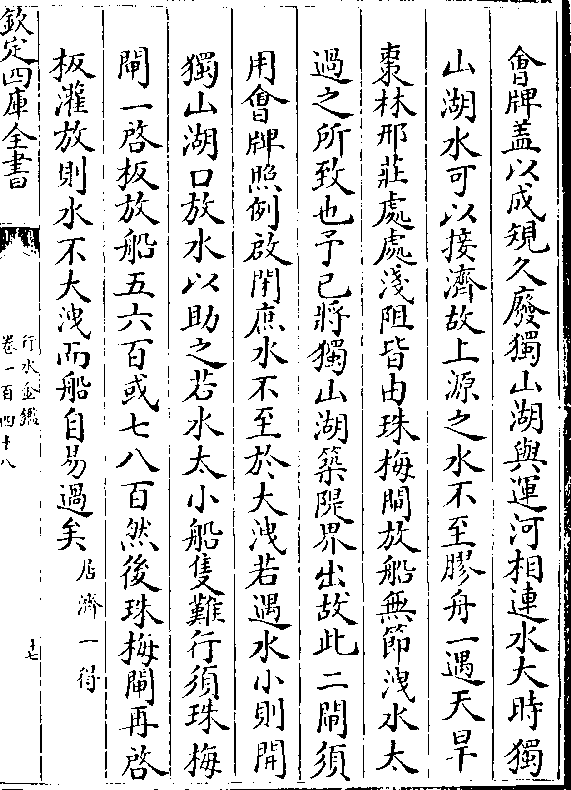 會牌盖以成規久廢獨山湖與運河相連水大時獨
山湖水可以接濟故上源之水不至膠舟一遇天旱
棗林邢莊處處淺阻皆由珠梅閘放船無節洩水太
過之所致也予已將獨山湖築隄界出故此二閘須
用會牌照例啟閉庶水不至於大洩若遇水小則開
獨山湖口放水以助之若水太小船隻難行須珠梅
閘一啓板放船五六百或七八百然後珠梅閘再啓
板灌放則水不大洩而船自易過矣居濟一得
欽定四庫全書
行水金鑑
卷一百四十八